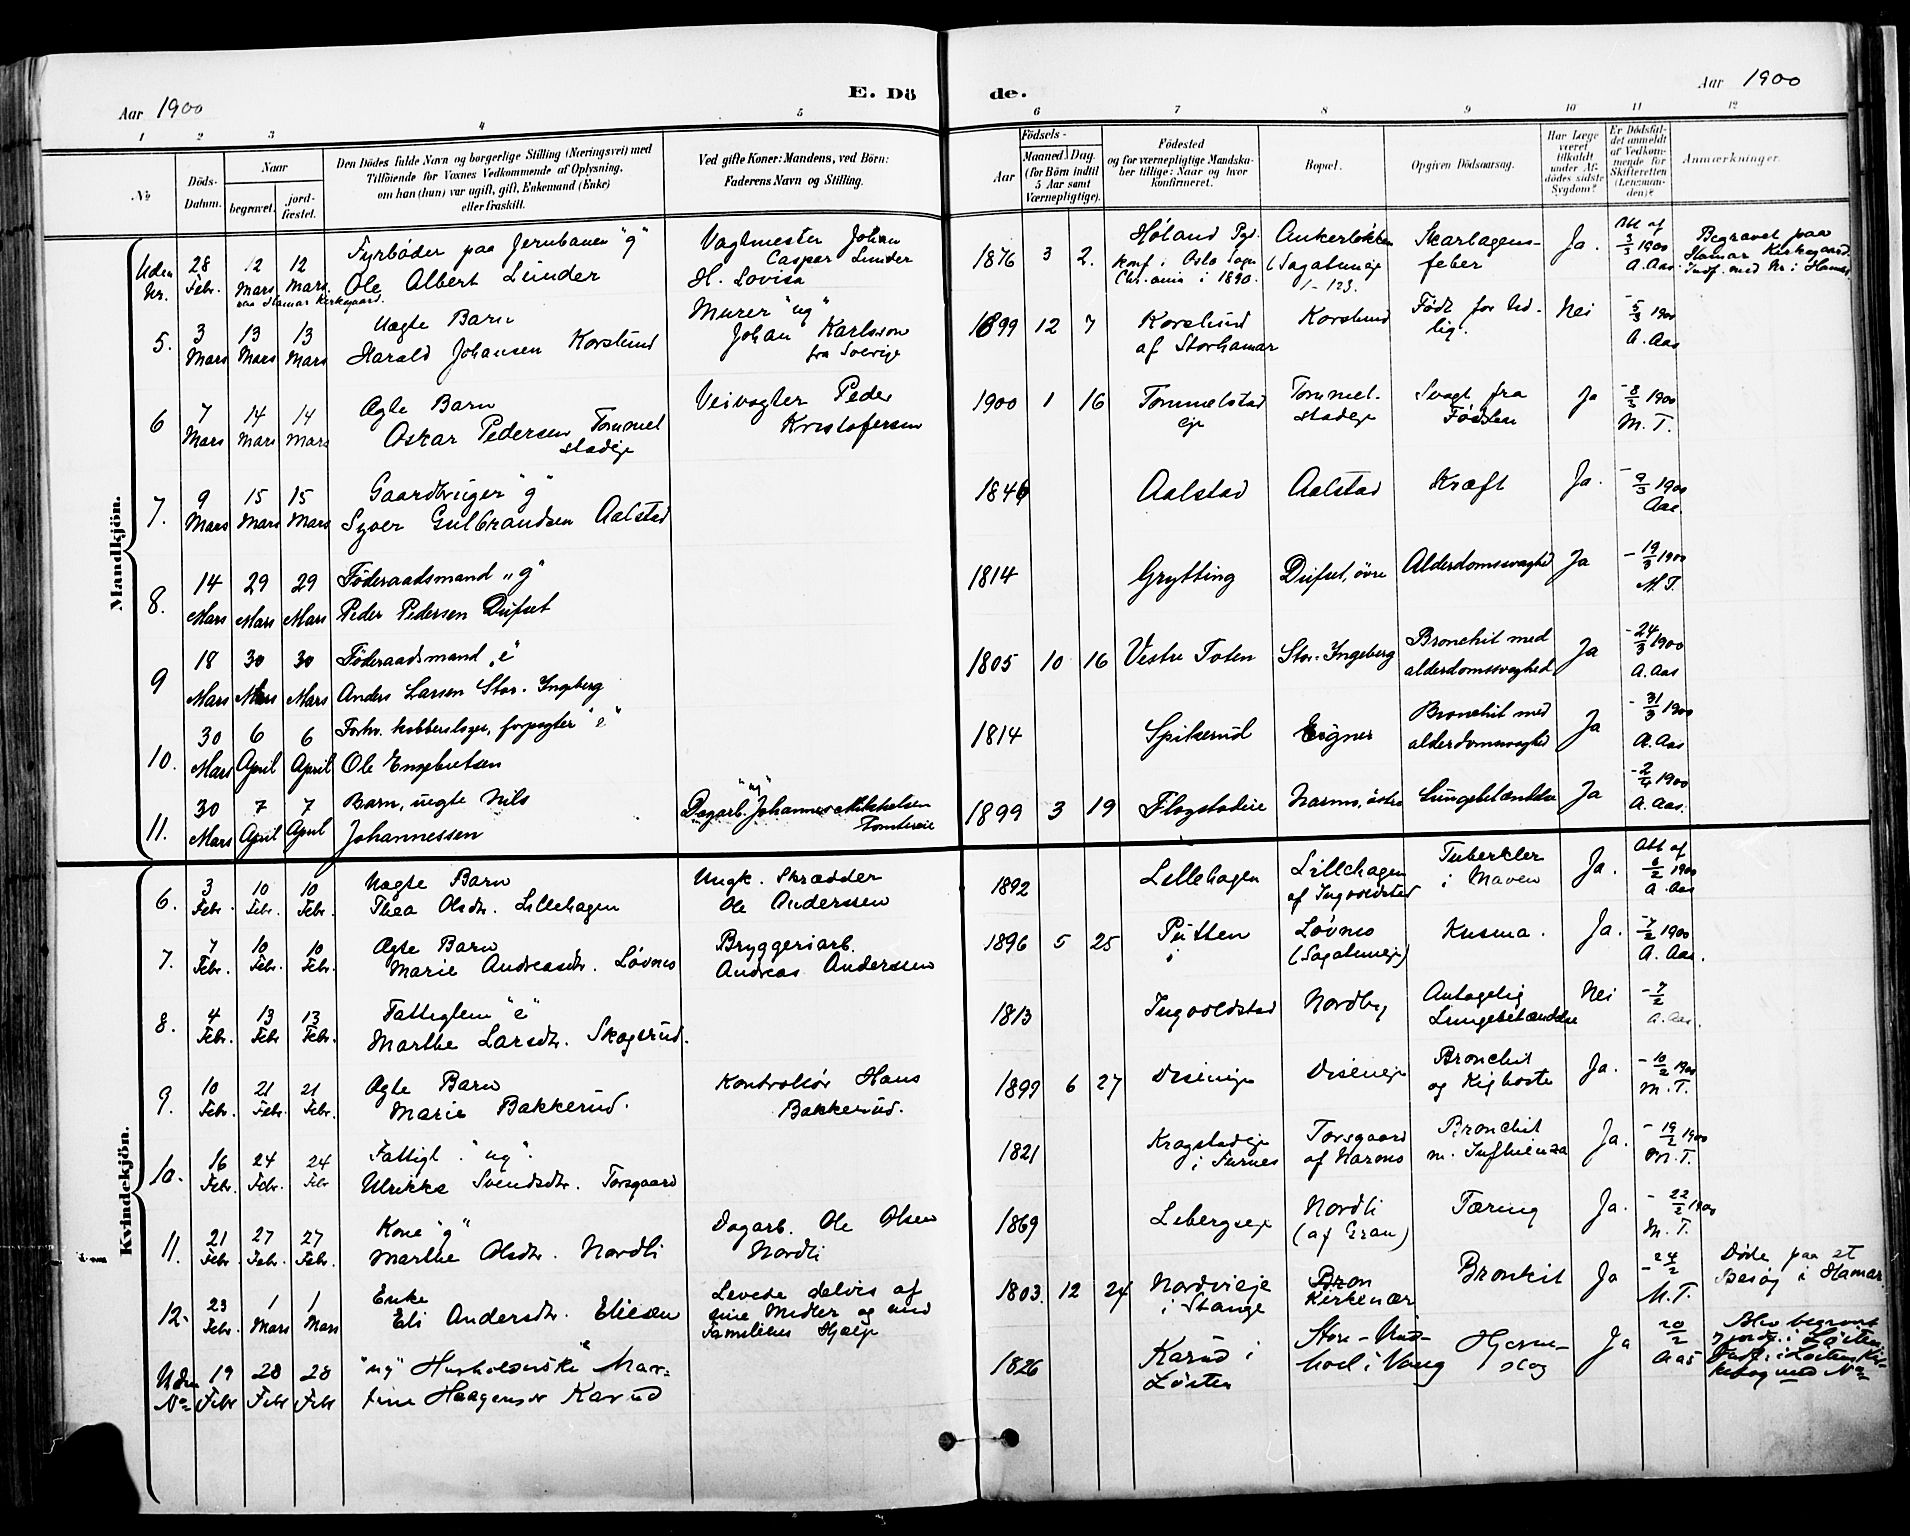 Aar 1900
E. Dö
de.
Aar 1900
1 2 3 4 5 6 7 8 9 10 11 12
No
Döds-Datum.
Naar
begravet.
jord-fæstet.
Den Dödes fulde Navn og borgerlige Stilling (Næringsvei) med
Tilföiende for Voxnes Vedkommende af Oplysning,
om han (hun) var ugift, gift, Enkemand (Enke)
eller fraskilt.
Ved gifte Koner: Mandens, ved Börn:
Faderens Navn og Stilling.
Födsels-
Aar
Maaned. Dag.
(for Börn indtil
5 Aar samt
Værnepligtige).
Födested
og for værnepligtige Mandska-
ber tillige: Naar og hvor
konfirmeret.
Bopæl.
Opgiven Dödsaarsag.
Har Læge
været
tilkaldt
under Af-
dödes sidste
Sygdom?
Er Dödsfal-
det anmeldt
af Vedkom-
mende for
Skifteretten
(Lensman-
den)?
Anmærkninger.
Mandkjön.
Uden Nr. 28 Febr. 12 Mars 12 Mars. paa Hamar Kirkegaard. Fyrböder paa Jernbanen "g" Ole Albert Lunder Vagtmester Johan Caspar Lunder H. Lovisa 1876 3 2. Høland Pgd. Konf. i Oslo Sogn Chr.ania i 1890. Ankerløkken (Sagatuneje 1-123. Skarlagens-feber Ja. Att af 3/3 1900 A. Aas Begravet paa Hamar Kirkegaard. Indf. med Nr. i Hamar
5. 3 Mars 13 Mars 13 Mars Uægte Barn Harald Johansen Korslund Murer "ug" Johan Karlsson fra Sverige 1899 12 7 Korslund af Storhamar Korslund Født for tid-lig. Nei - 5/3 1900 A. Aas
6 7 Mars 14 Mars 14 Mars Ægte Barn Oskar Pedersen Tommel stadeje Veivogter Peder Kristofersen 1900 1 16 Tommelstad eje Tommel-stadeje Svagt fra Fødslen Ja - 8/3 1900 M. T.
7. 9 Mars 15 Mars 15 Mars Gaardbruger "g" Syver Gulbrandsen Aalstad 1846 Aalstad Aalstad Kræft Ja. - 9/3 1900 Aas.
8. 14 Mars 29 Mars 29 Mars Føderaadsmand "g" Peder Pedersen Dufset 1814 Grytting Dufset, øvre Alderdomssvaghed Ja - 19/3 1900 M. T.
9 18 Mars 30 Mars 30 Mars Føderaadsmand "e" Anders Larsen Stor-Ingeberg 1805 10 16 Vestre Toten Stor-Ingeberg Bronchit med alderdomssvaghed Ja - 24/3 1900 A. Aas
10. 30 Mars 6 April 6 April Forhv. kobberslager, forpagter "e" Ole Engebretsen 1814 Spikerud Eigner Bronchit med alderdomssvaghed Ja - 31/3 1900 A. Aas
11. 30 Mars 7 April 7 April Barn, uegte Nils Johannessen Dagarb. "ug" Johannes Mikkelsen Tomtereie 1899 3 19 Flagstadeie Narmo, østre Lungebetændelse Ja - 2/4 1900 A. Aas.
Kvindekjön.
6. 3 Febr. 10 Febr. 10 Febr. Uægte Barn Thea Olsdtr. Lillehagen Ungk. Skrædder Ole Anderssen 1892 Lillehagen Lillehagen af Ingvoldstad Tuberkler i Maven Ja. Att af 6/2 1900 A. Aas
7. 7 Febr. 10 Febr. 10 Febr. Ægte Barn Marie Andreasdtr. Løvnes Bryggeriarb. Andreas Anderssen 1896 5 25 Putten Løvnes (Sagatuneje) Kusma. Ja. - 7/2 1900 A. Aas.
8. 4 Febr. 13 Febr. 13 Febr. Fattiglem "e" Marthe Larsdtr. Skogsrud. 1813 Ingvoldstad Nordby Antagelig Lungebetændelse Nei - 7/2 A. Aas.
9. 10 Febr. 21 Febr. 21 Febr. Ægte Barn Marie Bakkerud. Kontrollør Hans Bakkerud. 1899 6 27 Diseneje Diseneje Bronchit og Kighoste Ja. - 10/2 1900 M. T.
10. 16 Febr. 24 Febr. 24 Febr Fattigl. "ug". Ulrikke Svendsdtr. Torsgaard 1821 Kragstadeje i Furnes Torsgaard af Narmo Bronchit m. Influenza Ja. - 19/2 1900 M. T.
11. 21 Febr. 27 Febr. 27 Febr. Kone "g" Marthe Olsdtr. Nordli Dagarb. Ole Olsen Nordli 1869 Lebergseje Nordli (af Gran) Tæring Ja. - 22/2 1900 M. T.
12. 23 Febr. 1 Mars 1 Mars Enke Eli Andersdtr. Eliesen Levede delvis af sine Midler og ved Familiens Hjælp 1803. 12 24 Nordvieje i Stange Kirkenær Bronkit Ja - 24/2 M. T Døde paa et Besøg i Hamar
Uden No 19 Febr 28 Febr 28 Febr "ug" Husholderske Mar-tine Haagensdr Karud 1826 Karud i Løiten Store-Vind-hoel i Vang Hjerne-slag Ja 20/2 Aas Blev begravet og jordf. i Løiten Indf. i Løitens Kir-kebog med No